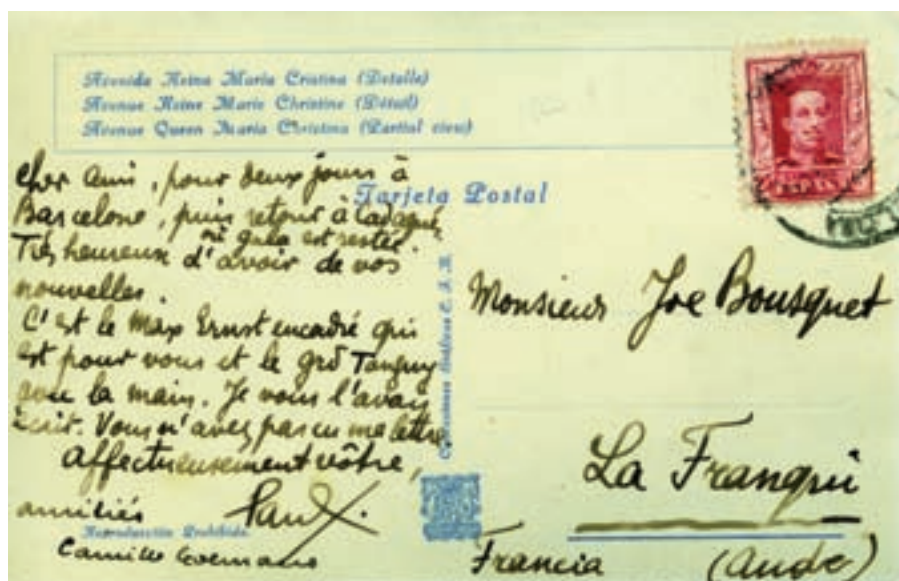 Avenida Reina Maria Cristina (Detalle)
Avenue Reine Marie Christine (Détail)
Avenue Queen Maria Christina (Partial view)
Tarjeta Postal
Cher Ami, pour deux jours à
Barcelone, puis retour à Cadaqués
où Gala est restée.
Très heureux d'avoir de vos
nouvelles.
C'est le Max Ernst encadré qui
est pour vous et le grd Tanguy
avec la main. Je vous l'avais
écrit. Vous n'avez pas eu ma lettre
Affectueusement vôtre,
amitiés Paul
Reproducción Prohibida.
Camille
Monsieur Joe Bousquet
La Franqui
Francia (Aude)